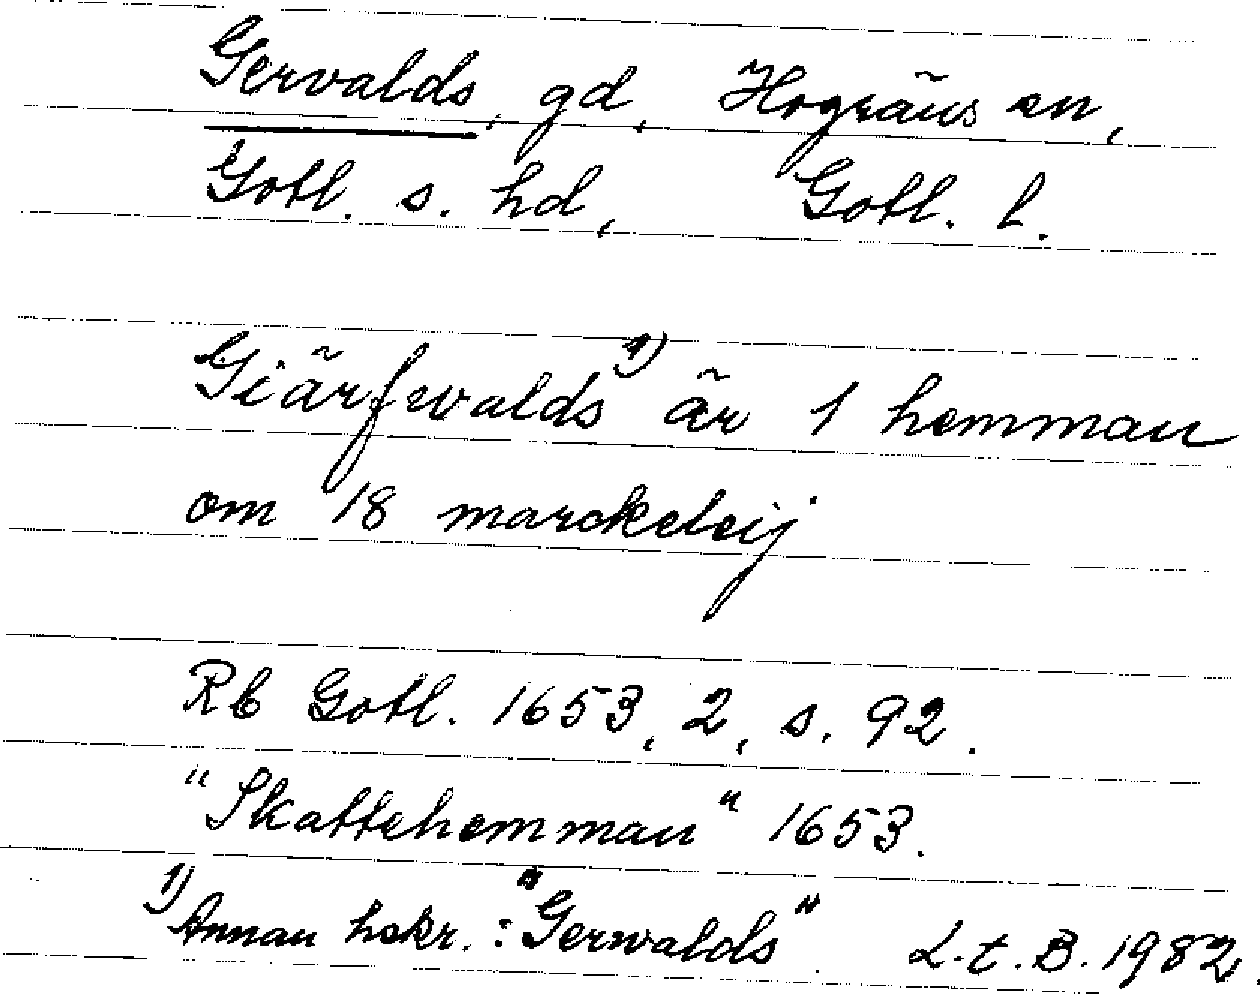 Gervalds, gd, Hogräns sn,
Gotl. s. hd, Gotl. l.
Giärfwalds¹⁾ är 1 hemman
om 18 marckeleij
Rb Gotl. 1653, 2, s. 92.
"Skattehemman" 1653.
¹⁾ Annan hskr.: "Gerwalds". L.t.B. 1982.